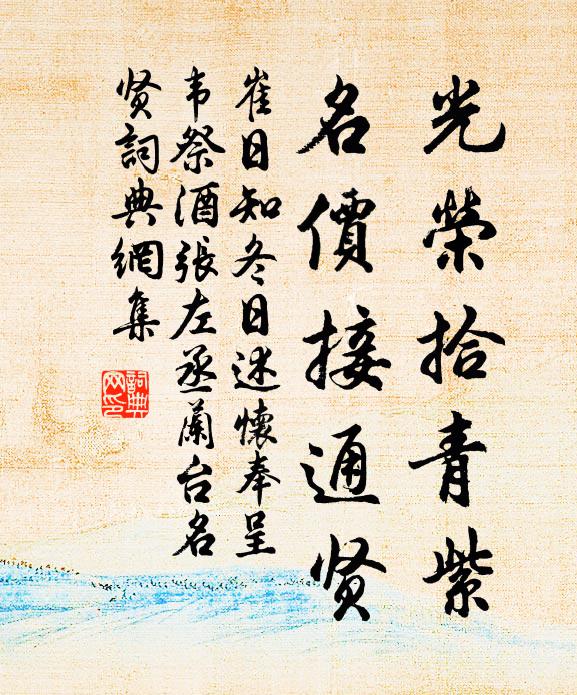 光榮拾青紫
名價接通贤
崔日知冬日述懷奉呈
韦祭酒張左丞蘭台名
贤詞典網集
詞典
网印